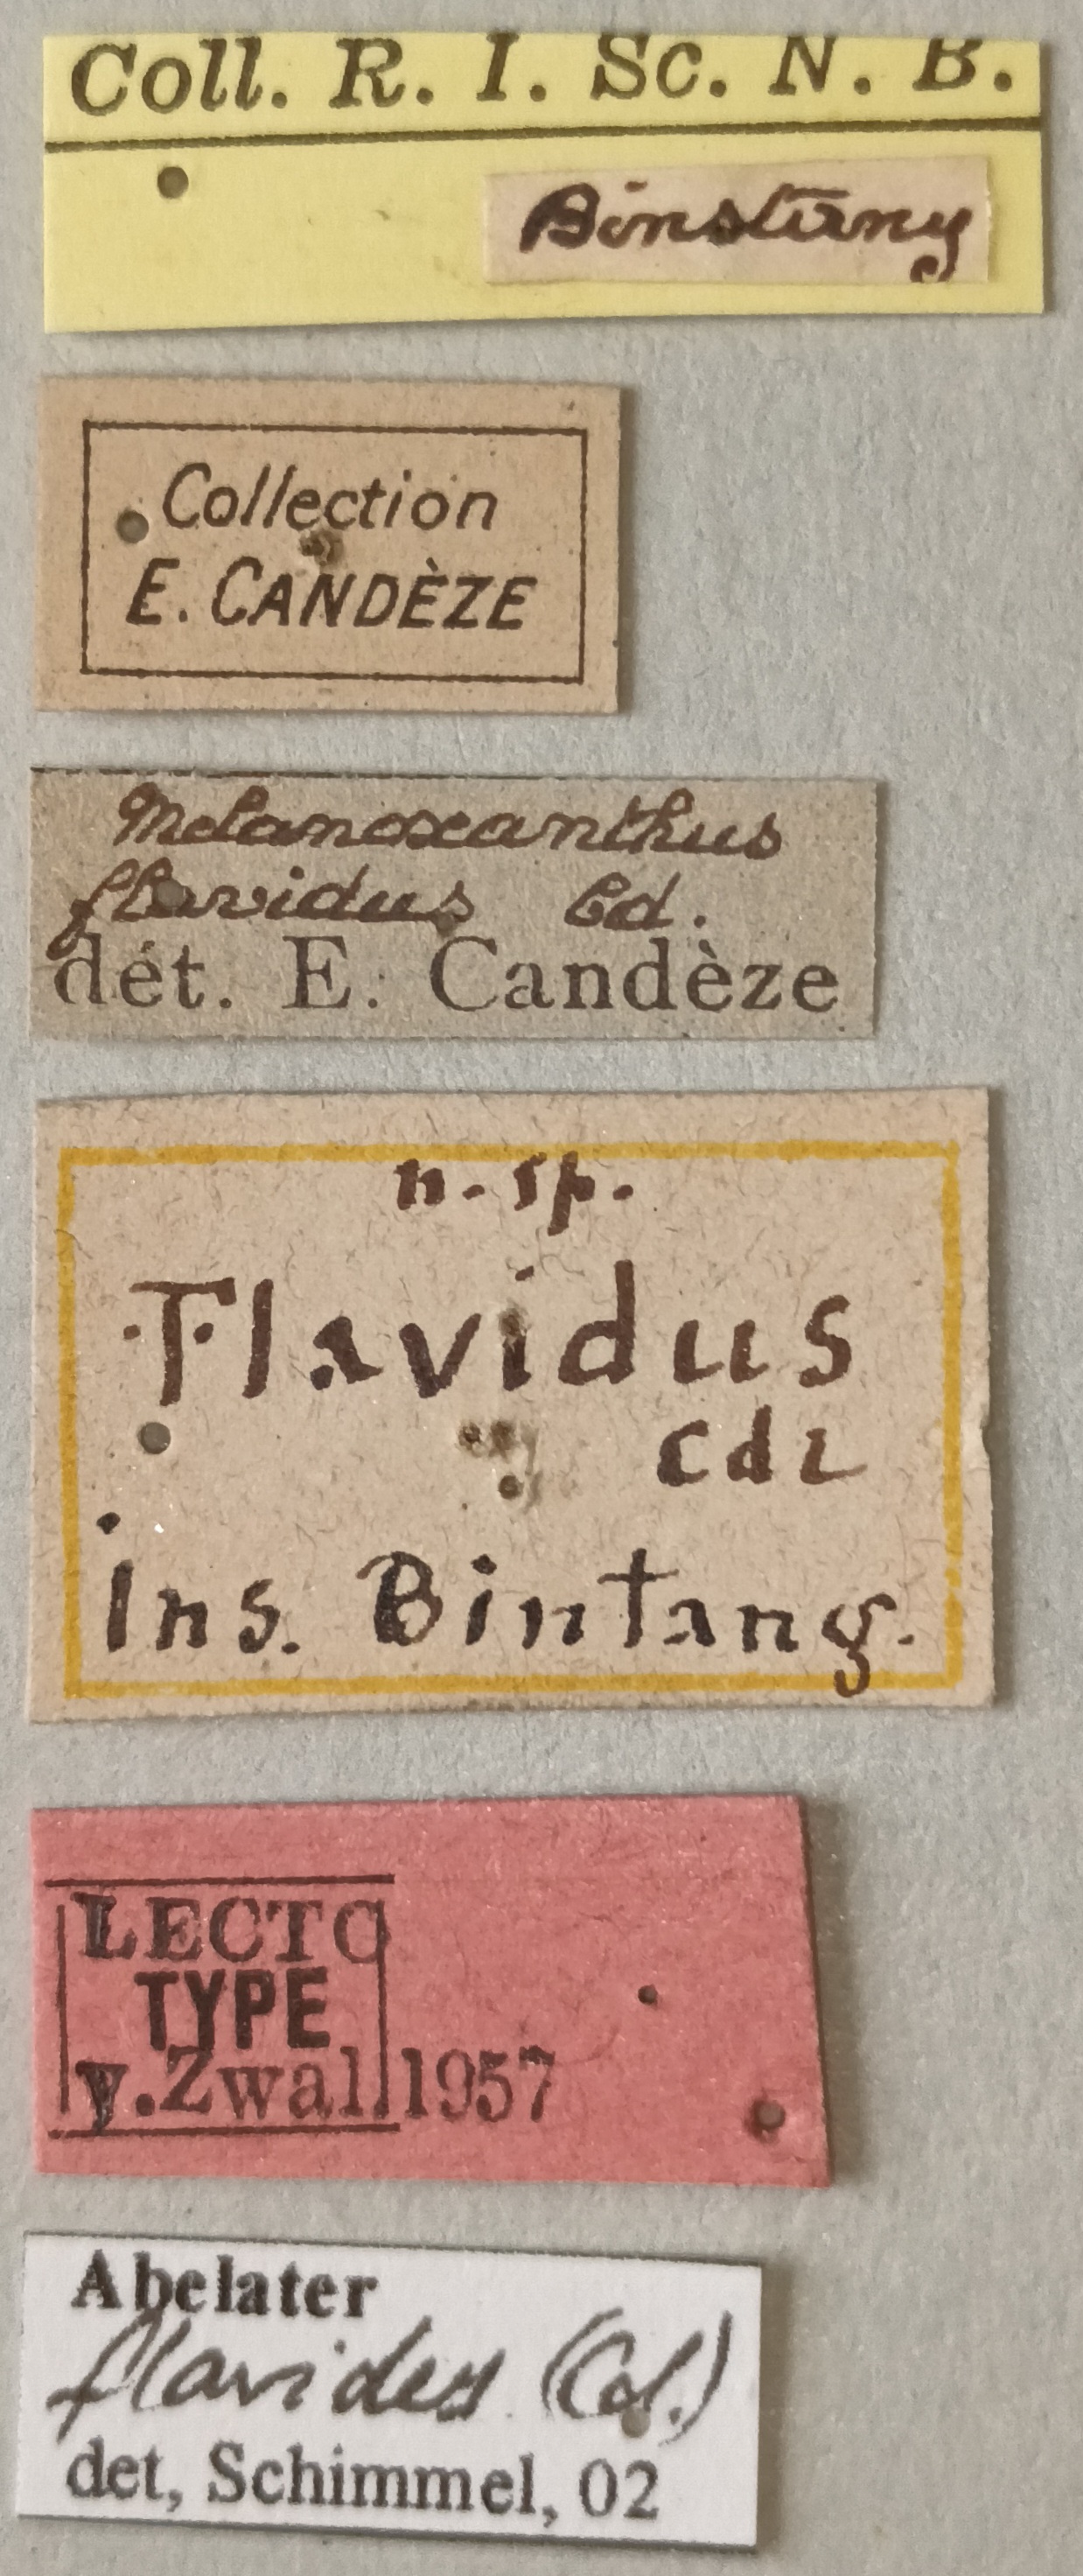 Coll. R. I. Sc. N. B.
Binstŭny
Collection
E. CANDÈZE
Melanoxanthus
flavidus Cd.
dét. E. Candèze
n. sp.
Flavidus
cdz
ins. Bintang.
LECTO
TYPE
v.Zwal.1957
Abelater
flavidus (Cd.)
det, Schimmel, 02